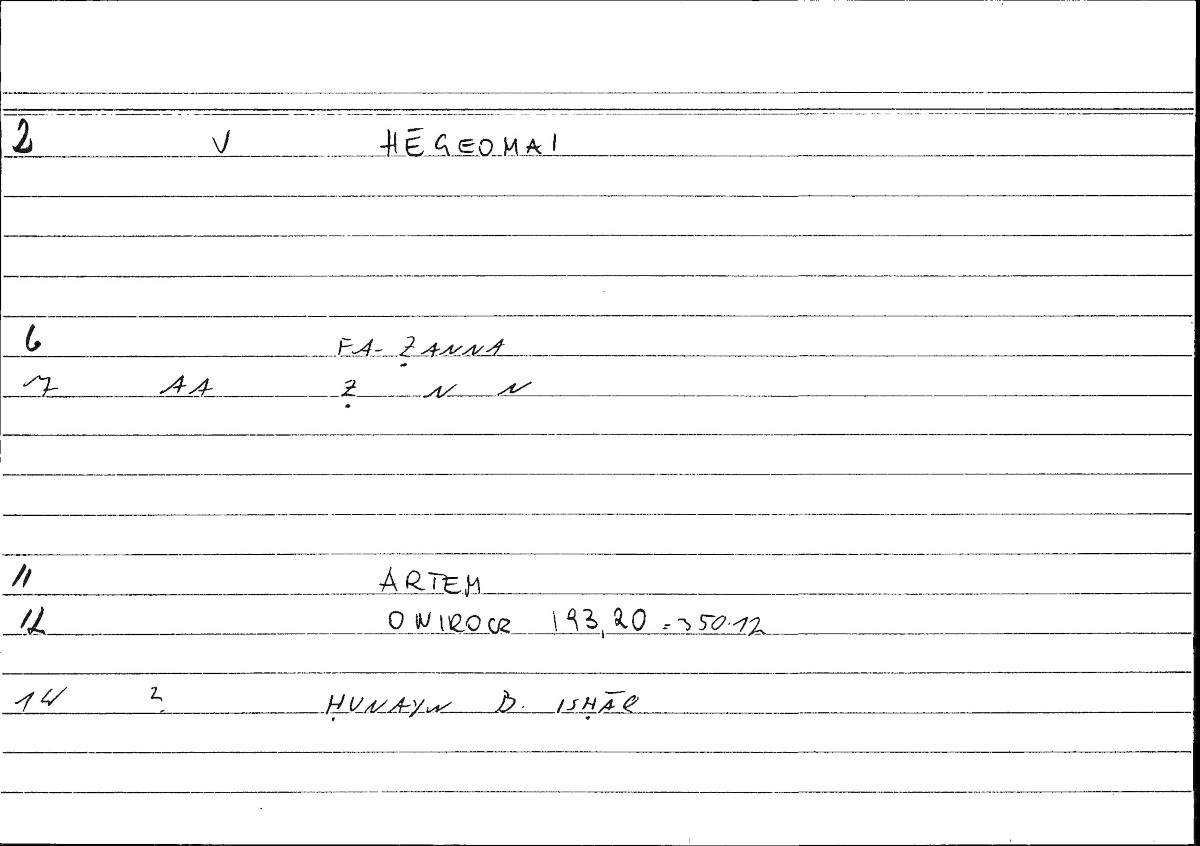 2 V HĒGEOMAI
6 FA-ẒANNA
7 AA Ẓ N N
11 ARTEM
12 ONIROCR 193,20 = 350.12
14 ? ḤUNAYN B. ISḤĀQ